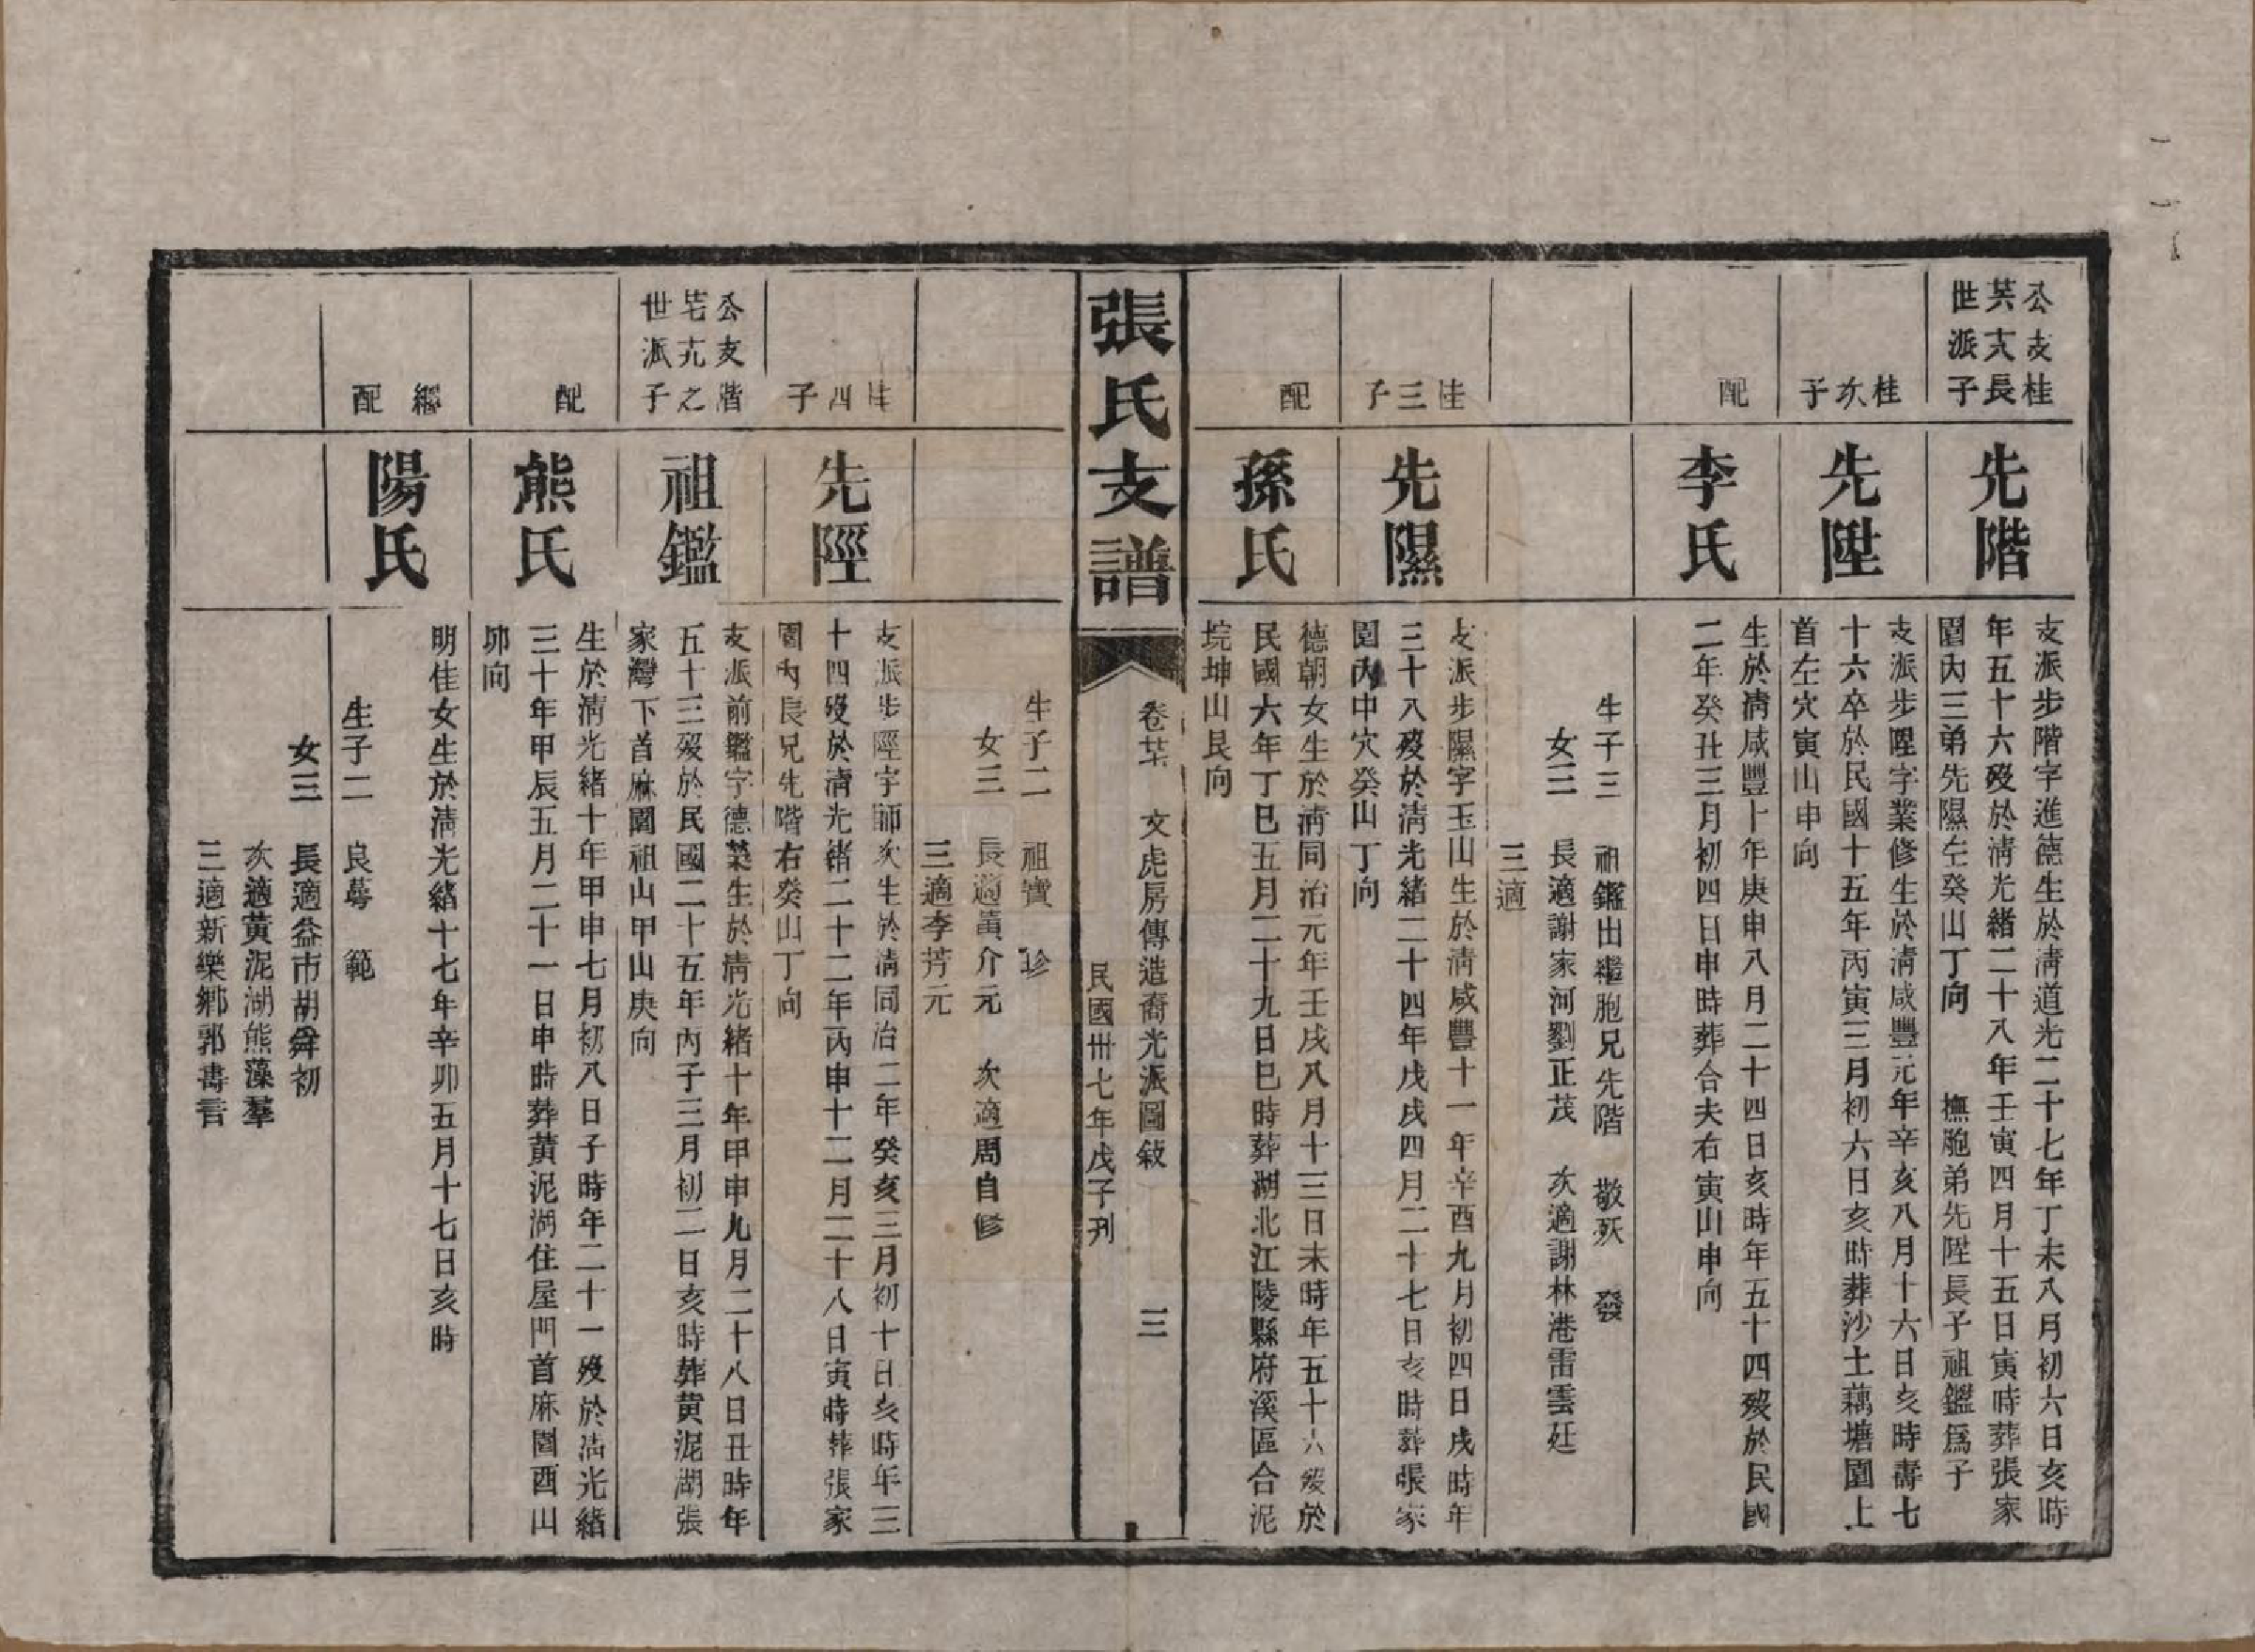 公支桂
芺大長
世派子
先階
支派步階字進德生於清道光二十七年丁未八月初六日亥時
年五十六歿於清光緒二十八年壬寅四月十五日寅時葬張家
園內三弟先隰左癸山丁向 撫胞弟先陞長子祖鑑爲子
桂次子
先陞
支派步陞字業修生於清咸豐元年辛亥八月十六日亥時壽七
十六卒於民國十五年丙寅三月初六日亥時葬沙土藕塘園上
首左穴寅山申向
配
李氏
生於清咸豐十年庚申八月二十四日亥時年五十四歿於民國
二年癸丑三月初四日申時葬合夫右寅山申向
生子三 祖鑑出繼胞兄先階 敬殀 發
女三 長適謝家河劉正茂 次適謝林港雷雲廷
三適
桂三子
先隰
支派步隰字玉山生於清咸豐十一年辛酉九月初四日戌時年
三十八歿於清光緒二十四年戊戌四月二十七日亥時葬張家
園內中穴癸山丁向
配
孫氏
德朝女生於清同治元年壬戌八月十三日未時年五十六歿於
民國六年丁巳五月二十九日巳時葬湖北江陵縣府溪區合泥
垸坤山艮向
張氏支譜
卷廿 文虎房傳造裔光派圖敘 三
民國卅七年戊子刊
生子二 祖寶 珍
女三 長適黃介元 次適周自修
三適李芳元
桂四子
先陘
支派步陘字師次生於清同治二年癸亥三月初十日亥時年三
十四歿於清光緒二十二年丙申十二月二十八日寅時葬張家
園內長兄先階右癸山丁向
公支階
芼亢之
世派子
祖鑑
支派前鑑字德棻生於清光緒十年甲申九月二十八日丑時年
五十三歿於民國二十五年丙子三月初二日亥時葬黃泥湖張
家灣下首麻園祖山甲山庚向
配
熊氏
生於清光緒十年甲申七月初八日子時年二十一歿於清光緒
三十年甲辰五月二十一日申時葬黃泥湖住屋門首麻園酉山
卯向
繼配
陽氏
明佳女生於清光緒十七年辛卯五月十七日亥時
生子二 良蕚 範
女三 長適益市胡舜初
次適黃泥湖熊藻羣
三適新樂鄉郭壽言